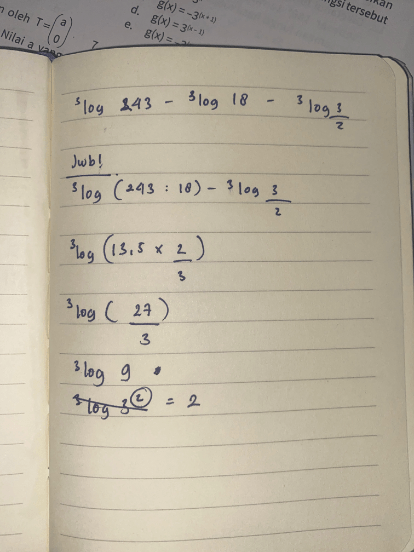 n oleh T = (a 0)
d. g(x) = -3^(x+1)
e. g(x) = 3^(x-1)
g(x) =
gsi tersebut
Nilai a yang
³log 243 - ³log 18 - ³log 3/2
Jwb!
³log (243 : 18) - ³log 3/2
³log (13,5 × 2/3)
³log (27/3)
³log 9
³log 3² = 2